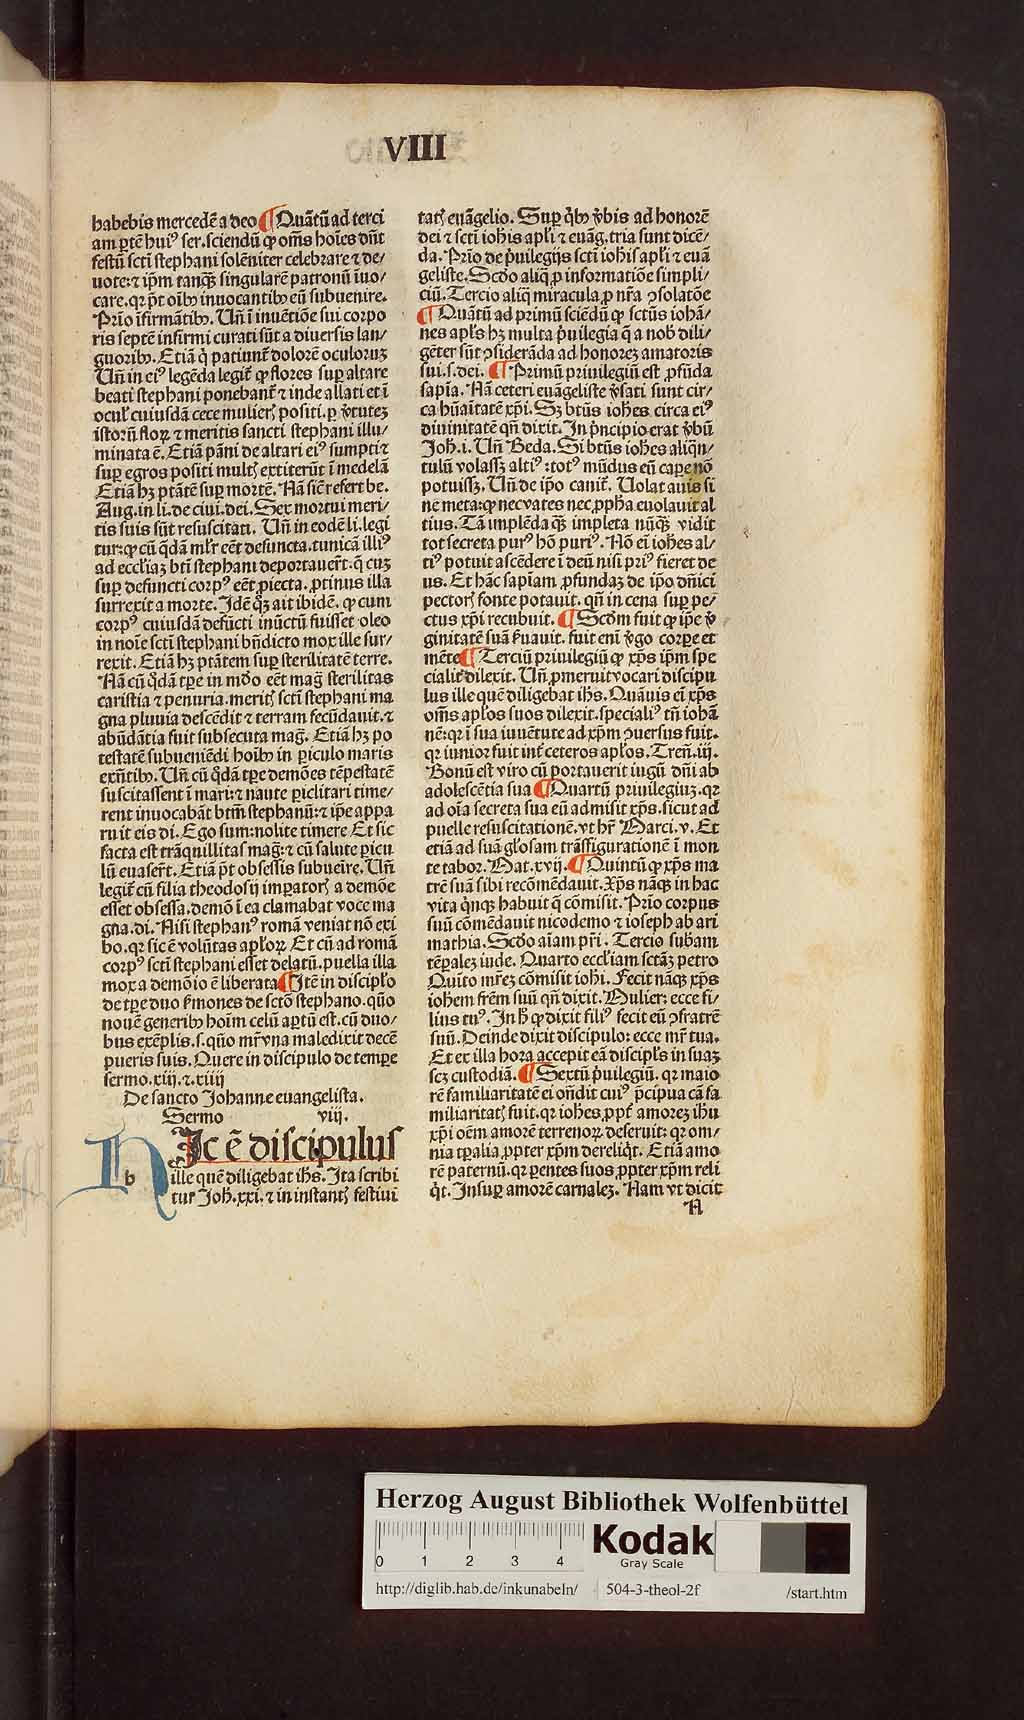 VIII
habebis mercedē a deo ¶ Quātū ad terci
am ꝑtē huiꝰ ser. sciendū ꝙ om̄s hoīes dn̄t
festū scti stephani solēniter celebrare ⁊ de/
uote: ⁊ ip̄m tanqꝫ singularē patronū īuo/
care. qꝛ pt̄ oībꝰ inuocantibꝰ eū subuenire.
Prīo īfirmātibꝰ. Un̄ ī inuētiōe sui corpo
ris septē infirmi curati sūt a diuersis lan/
guoribꝰ. Etiā q̇ patiunt̄ dolorē oculoruꝫ
Un̄ in eiꝰ legēda legit̄ ꝙ flores suꝑ altare
beati stephani ponebant̄ ⁊ inde allati et ī
oculꝭ cuiusdā cece mulierꝭ positi. ꝑ ꝟtuteꝫ
istorū floꝝ ⁊ meritis sancti stephani illu/
minata ē. Etiā pāni de altari eiꝰ sumpti ⁊
suꝑ egros positi multꝭ extiterūt ī medelā
Etiā hꝫ ptātē suꝑ mortē. Nā sic̄ refert be.
Aug. in li. de ciui. dei. Sex mortui meri/
tis suis sūt resuscitati. Un̄ in eodē li. legi
tur: ꝙ cū q̄dā ml̄r eēt defuncta. tunicā illiꝰ
ad eccl̄iaꝫ btī stephani deportauer̄t. q̄ cuꝫ
suꝑ defuncti corpꝰ eēt ꝓiecta. ꝓtinus illa
surrexit a morte. Idē qꝫ ait ibidē. ꝙ cum
corpꝰ cuiusdā defūcti inūctū fuisset oleo
in noīe scti stephani bn̄dicto mox ille sur/
rexit. Etiā hꝫ ptātem suꝑ sterilitatē terre.
Nā cū q̄dā tꝑe in mūdo eēt mag̃ sterilitas
caristia ⁊ penuria. meritꝭ scti stephani ma
gna pluuia descēdit ⁊ terram fecūdauit. ⁊
abūdātia fuit subsecuta mag̃. Etiā hꝫ po
testatē subueniēdi hoībꝰ in ꝑiculo maris
exn̄tibꝰ. Un̄ cū q̄dā tꝑe demōes tēpestatē
suscitassent ī mari: ⁊ naute ꝑiclitari time/
rent inuocabāt btm̄ stephanū: ⁊ ip̄e appa
ruit eis di. Ego sum: nolite timere Et sic
facta est trāquillitas mag̃: ⁊ cū salute ꝑicu
lū euaser̄t. Etiā pt̄ obsessis subueīre. Un̄
legit̄ cū filia theodosij imꝑatorꝭ a demōe
esset obsessa. demō ī ea clamabat voce ma
gna. di. Nisi stephanꝰ romā veniat nō exi
bo. qꝛ sic ē volūtas apl̄oꝝ Et cū ad romā
corpꝰ scti stephani esset delatū. puella illa
mox a demōio ē liberata ¶ Itē in discipl̄o
de tꝑe duo ẜmones de scto stephano. quō
nouē generibꝰ hoīm celū aꝑtū est. cū duo/
bus exēplis. s. quō mr̄ vna maledixit decē
pueris suis. Quere in discipulo de tempe
sermo. xiij. ⁊. xiiij
De sancto Johanne euangelista.
Sermo viij.
HIc ē discipulus
b ille quē diligebat ihs. Ita scribi
tur Joh̄. xxi. ⁊ in instantꝭ festiui
tatꝭ euāgelio. Suꝑ q̇bꝰ ꝟbis ad honorē
dei ⁊ scti iohis apl̄i ⁊ euāg. tria sunt dicē/
da. Prīo de ṗuilegijs scti iohis apl̄i ⁊ euā
geliste. Scd̄o aliq̄ ꝓ informatiōe simpli/
ciū. Tercio aliq̄ miracula ꝓ nr̄a ꝯsolatōe
¶ Quātū ad primū sciēdū ꝙ sctus iohā/
nes apl̄s hꝫ multa ṗuilegia q̄ a nob̄ dili/
gēter sūt ꝯsiderāda ad honoreꝫ amatoris
sui. s. dei. ¶ Primū priuilegiū est ꝓfūda
sapīa. Nā ceteri euāgeliste ꝟsati sunt cir/
ca hūaītatē xp̄i. Sꝫ btūs ioh̄es circa eiꝰ
diuinitatē qn̄ dixit. In ṗncipio erat ꝟbū
Joh̄. i. Un̄ Beda. Si btūs ioh̄es aliqn̄/
tulū volassꝫ altiꝰ: totꝰ mūdus eū caꝑe nō
potuissꝫ. Un̄ de ip̄o canit̄. Uolat auis si
ne meta: quo nec vates nec ꝓpħa euolauit al
tius. Tā implēda qꝫ impleta nūqꝫ vidit
tot secreta purꝰ hō puriꝰ. Nō eī ioh̄es al/
tiꝰ potuit ascēdere ī deū nisi priꝰ fieret de
us. Et hāc sapīam ꝓfundaꝫ de ip̄o dn̄ici
pectorꝭ fonte potauit. qn̄ in cena suꝑ pe/
ctus xp̄i recubuit. ¶ Scd̄m fuit ꝙ ip̄e ꝟ
ginitatē suā ẜuauit. fuit enī ꝟgo corꝑe et
mēte ¶ Terciū priuilegiū ꝙ xp̄s ip̄m spe
cialit̄ dilexit. Un̄ ꝓmeruit vocari discipu
lus ille quē diligebat ihs. Quāuis eī xp̄s
om̄s apl̄os suos dilexit. specialiꝰ tn̄ iohā
nē: qꝛ ī sua iuuētute ad xp̄m ꝯuersus fuit.
qꝛ iunior fuit int̄ ceteros apl̄os. Tren̄. iij.
Bonū est viro cū portauerit iugū dn̄i ab
adolescētia sua ¶ Quartū priuilegiuꝫ. qꝛ
ad oīa secreta sua eū admisit xp̄s. sicut ad
puelle resuscitationē. vt hr̄ Marci. v. Et
etiā ad suā gl̄osam trāsfigurationē ī mon
te tabor. Mat. xvij. ¶ Quintū ꝙ xp̄s ma
trē suā sibi recōmēdauit. Xp̄s nāqꝫ in hac
vita q̇nqꝫ habuit q̄ cōmisit. Prīo corpus
suū cōmēdauit nicodemo ⁊ ioseph ab ari
mathia. Scd̄o aīam pr̄i. Tercio subam
tēꝑaleꝫ iude. Quarto eccl̄iam sctāꝫ petro
Quīto mr̄eꝫ cōmisit iohi. Fecit nāqꝫ xp̄s
ioh̄em fr̄em suū qn̄ dixit. Mulier: ecce fi/
lius tuꝰ. In ħ ꝙ dixit filiꝰ fecit eū ꝯfratrē
suū. Deinde dixit discipulo: ecce mr̄ tua.
Et ex illa hora accepit eā discipl̄s in suaꝫ
scꝫ custodiā. ¶ Sextū ṗuilegiū. qꝛ maio
rē familiaritatē ei on̄dit cuiꝰ p̄cipua cā fa
miliaritatꝭ fuit. qꝛ ioh̄es. ꝓpt̄ amoreꝫ ihū
xp̄i oēm amorē terrenoꝝ deseruit: qꝛ om/
nia tꝑalia ꝓpter xp̄m dereliq̇t. Etiā amo
rē paternū. qꝛ ꝑentes suos ꝓpter xp̄m reli
q̇t. Insuꝑ amorē carnaleꝫ. Nam vt dicit
A
Herzog August Bibliothek Wolfenbüttel
0 1 2 3 4
Kodak
Gray Scale
http://diglib.hab.de/inkunabeln/ 504-3-theol-2f /start.htm